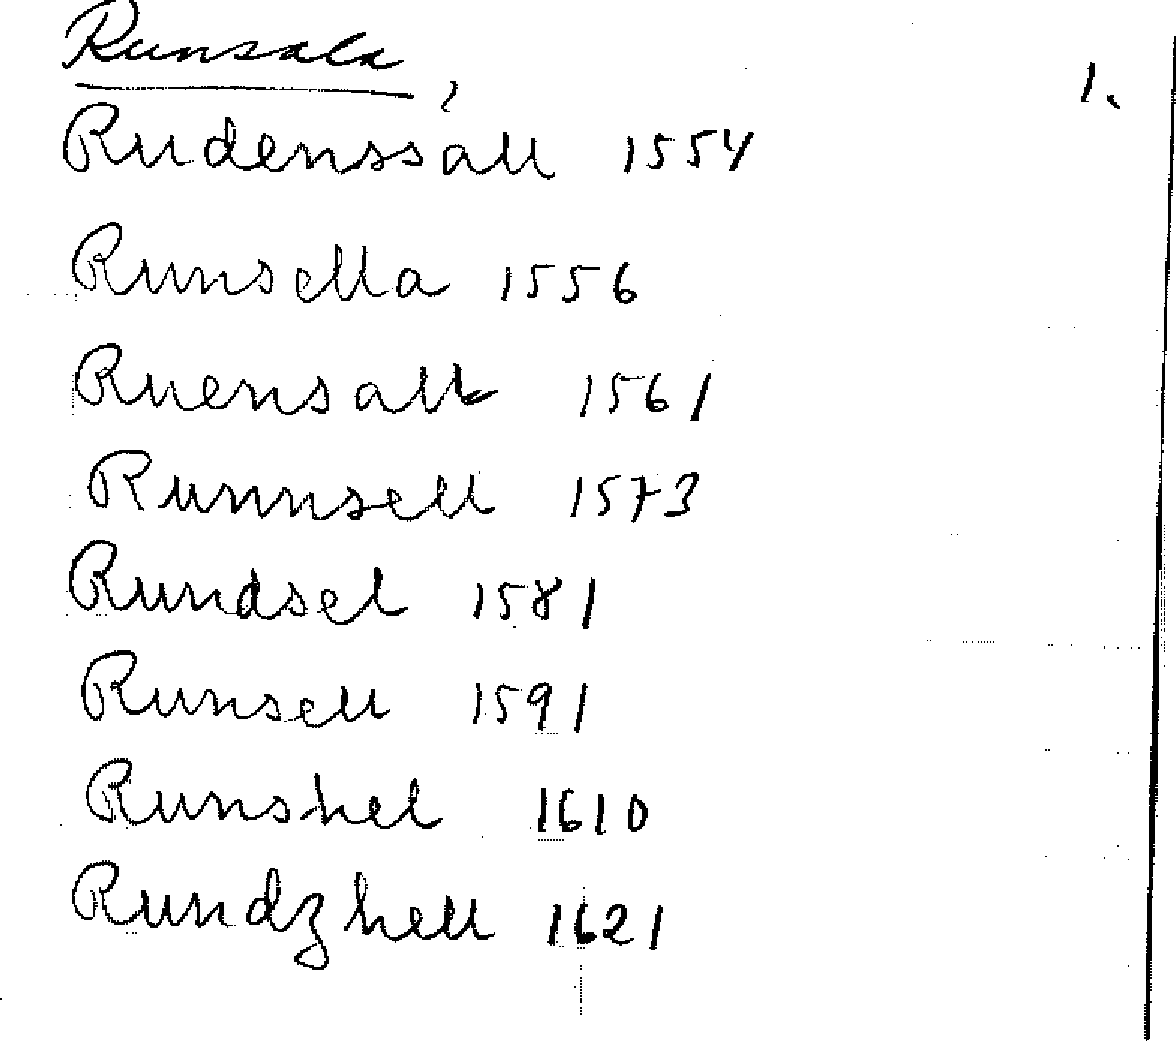 Runsala 1.
Rudenssall 1554
Runsella 1556
Ruensall 1561
Runnsell 1573
Rundsel 1581
Runsell 1591
Runshel 1610
Rundzhell 1621